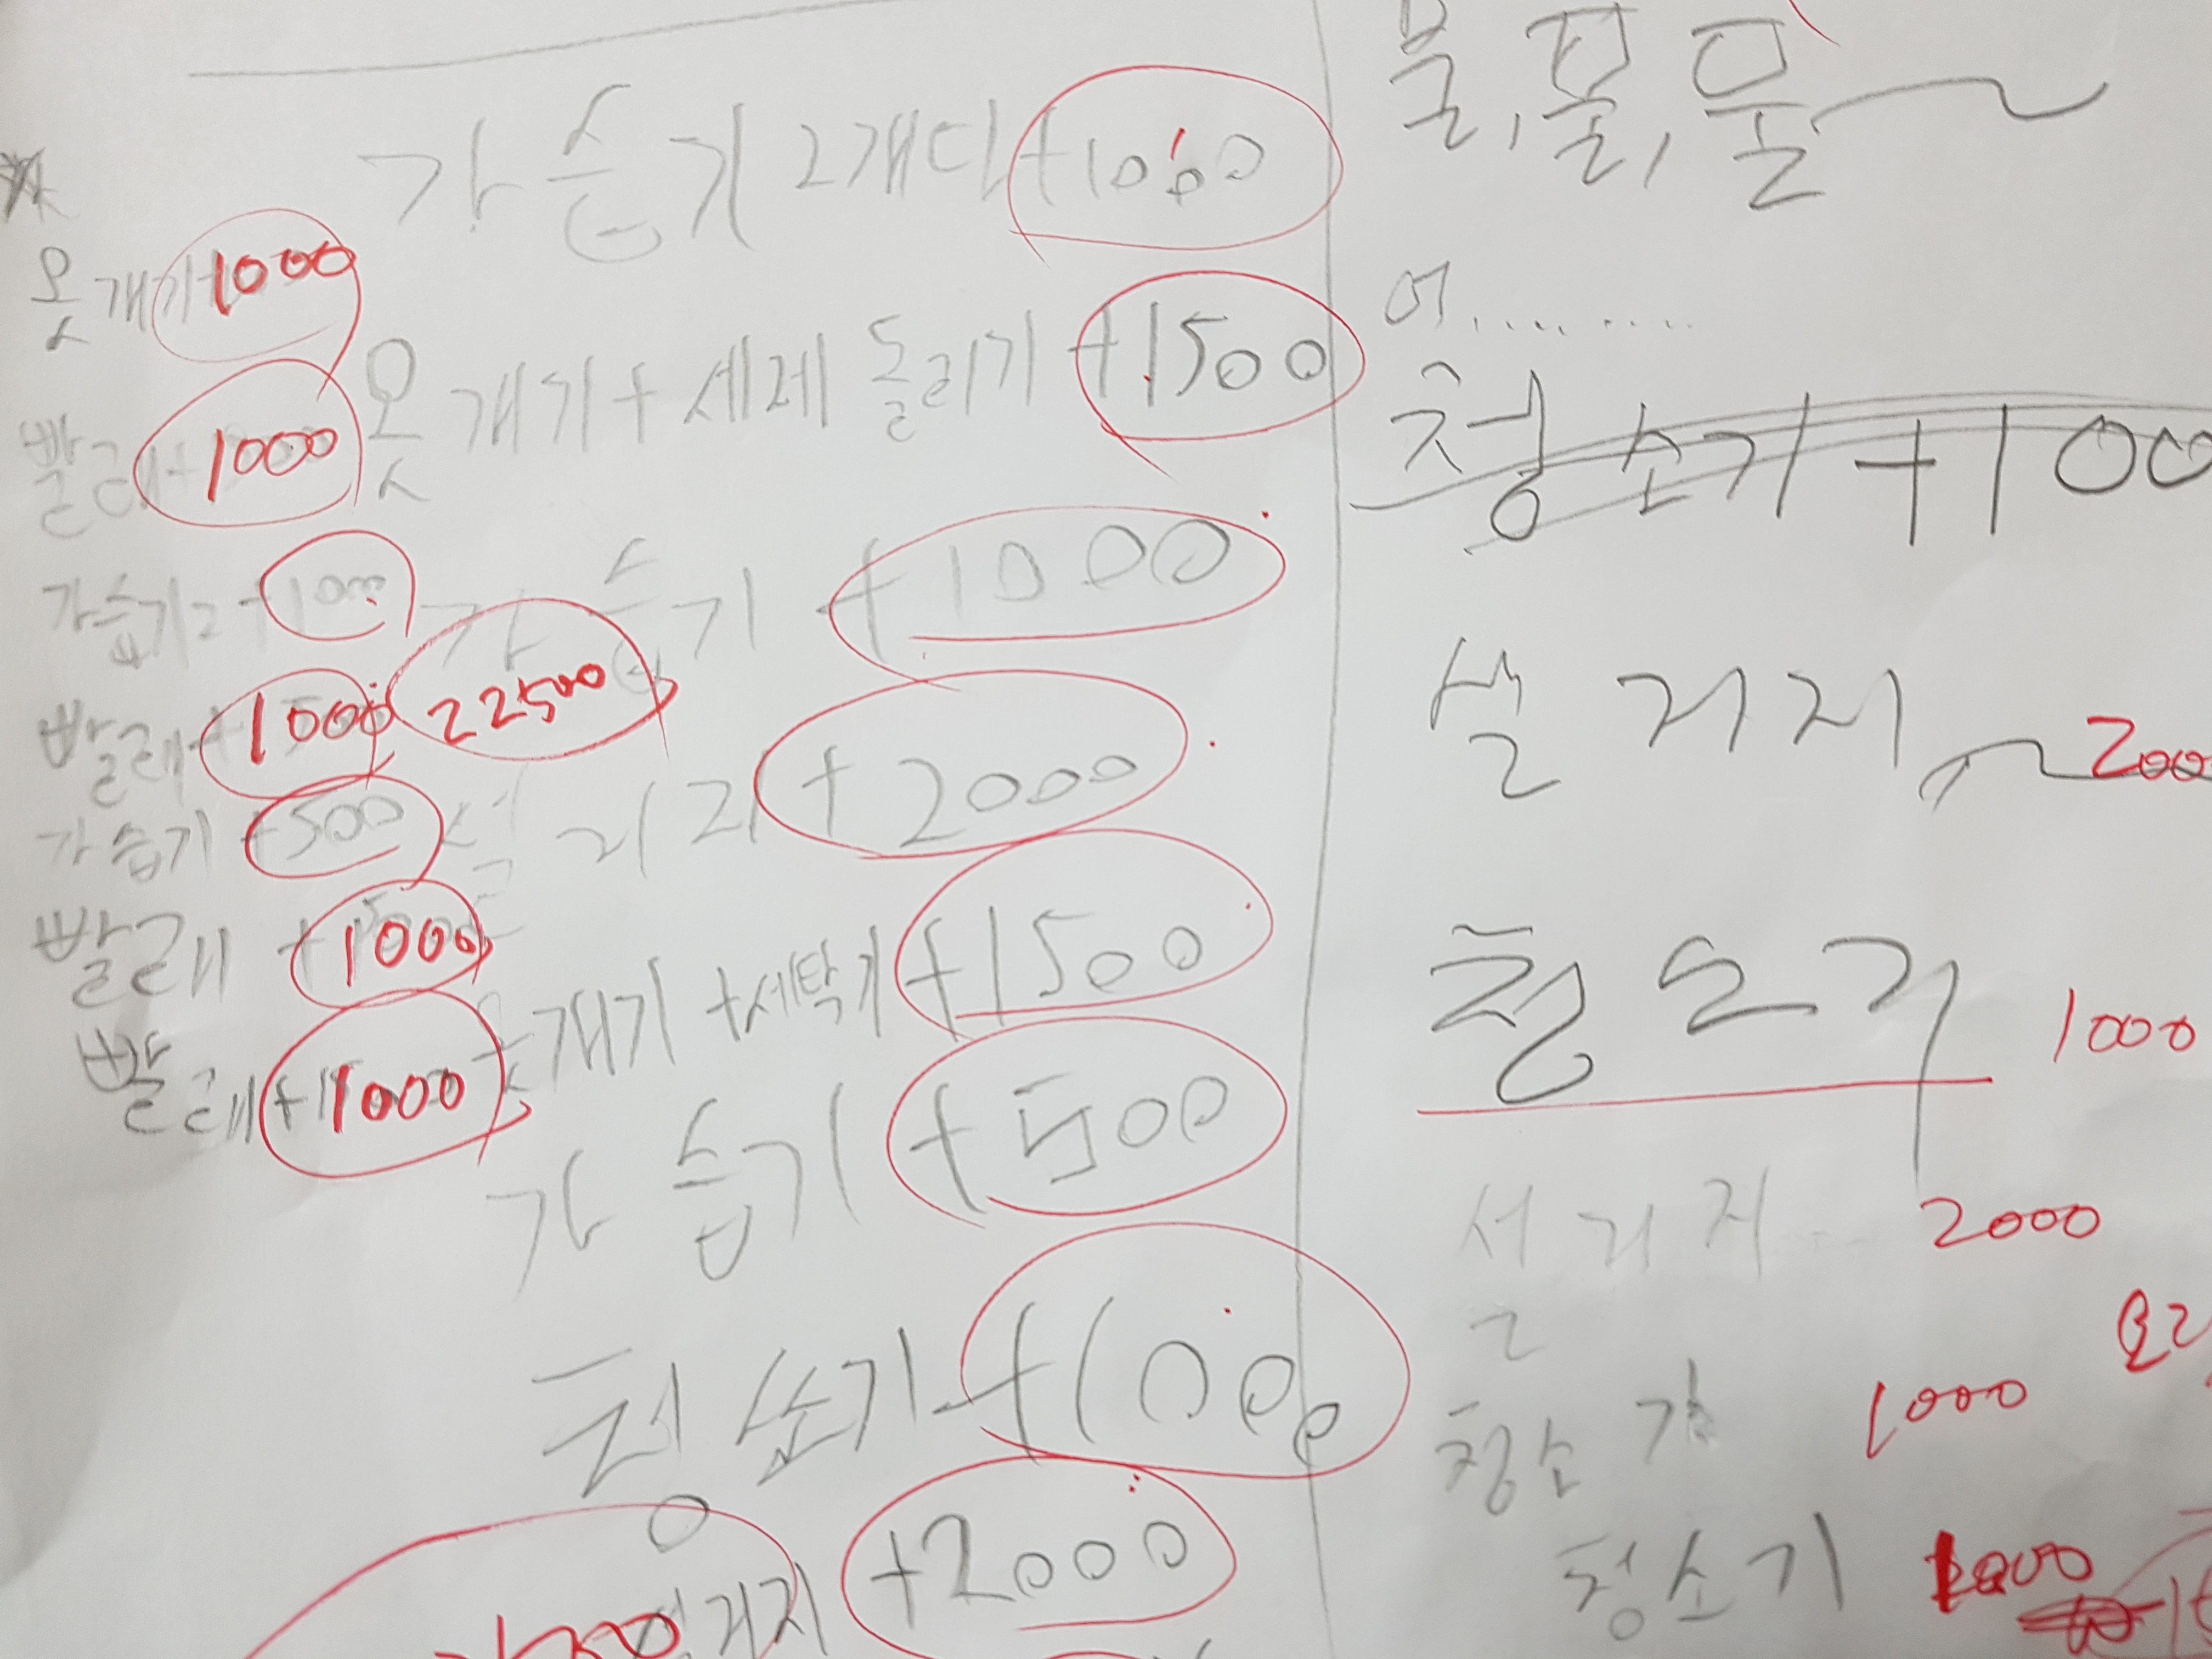 옷개기 1000
빨래+ 1000
가습기2 +1000
빨래+ 1000
가습기 +500
빨래 +1000
빨래+1000
22500
가습기 2개다 +1000
옷개기+세제 돌리기 +1500
가습기 +1000
설거지 +2000
옷개기 +세탁기 +1500
가습기 +500
청소기 +1000
설거지 +2000
물, 물, 물
어.........
청소기 +100
설거지 2000
청소기 1000
설거지 2000
청소기 1000
청소기 1000